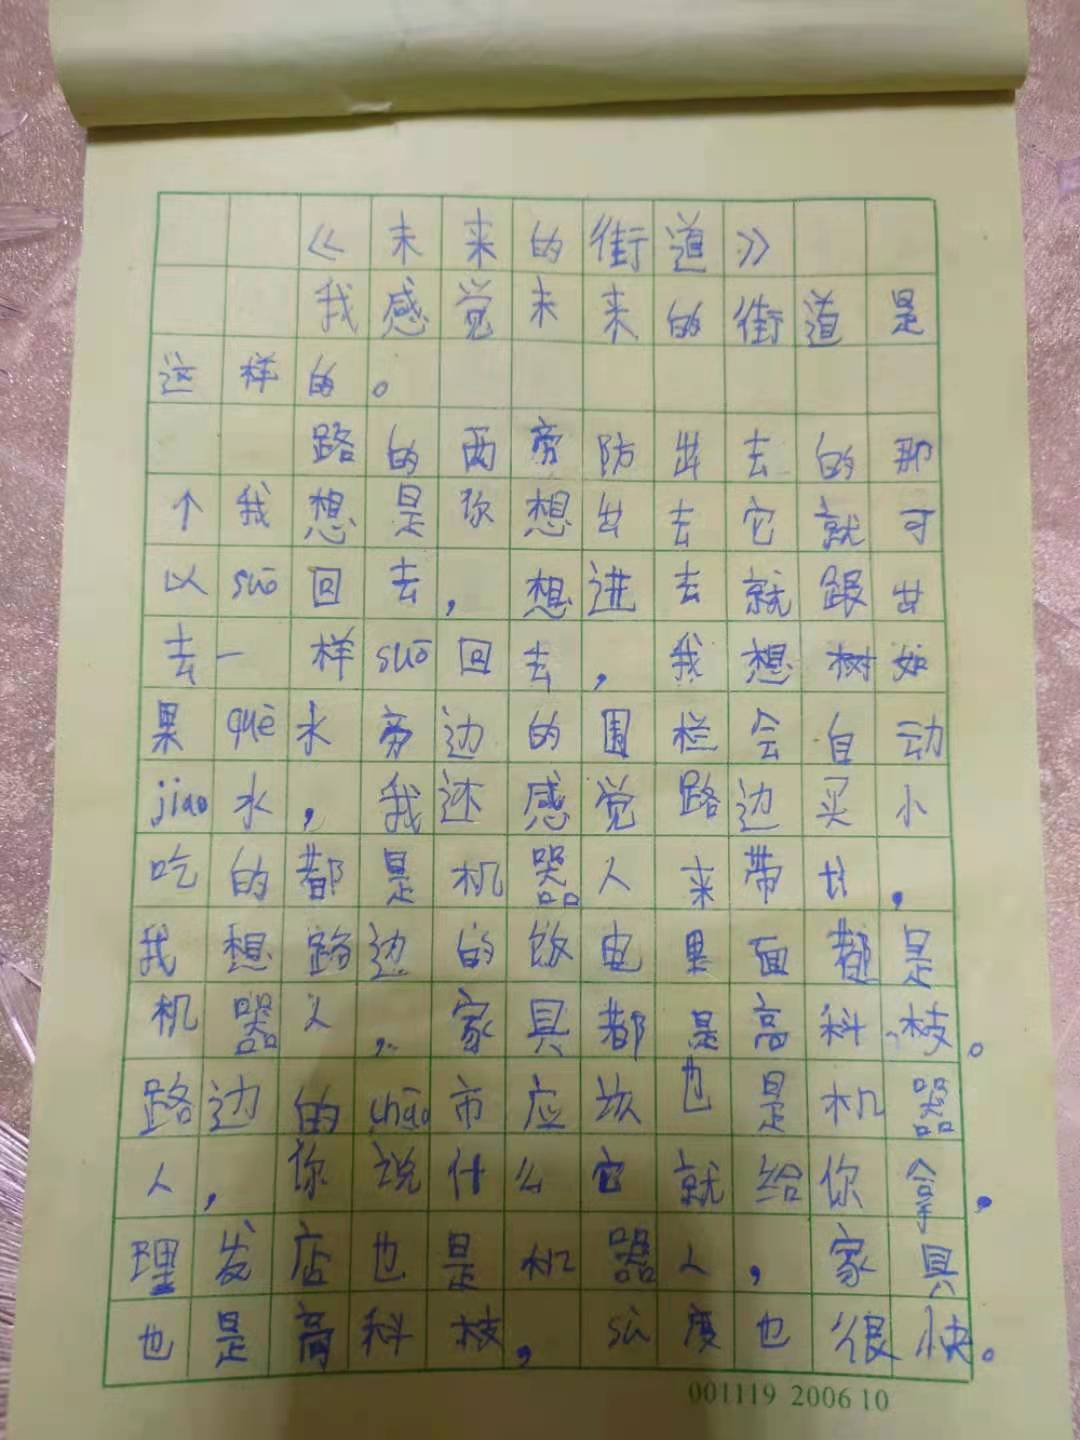 《未来的街道》
我感觉未来的街道是
这样的。
路的两旁防出去的那
个我想是你想出去它就可
以suō回去,想进去就跟出
去一样suō回去,我想树如
果quē水旁边的围栏会自动
jiao水,我还感觉路边买小
吃的都是机器人来带 ,
我想路边的饭电里面都是
机器人,家具都是高科枝。
路边的chāo市应该也是机器
人,你说什么它就给你拿,
理发店也是机器人,家具
也是高科枝,sù度也很快。
001119 2006 10